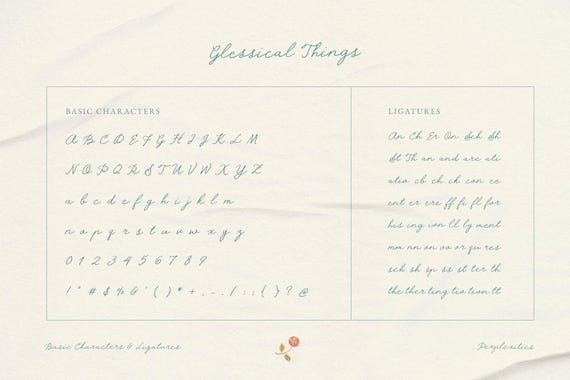 Glessical Things
BASIC CHARACTERS
A B C D E F G H I J K L M
N O P Q R S T U V W X Y Z
a b c d e f g h i j k l m
n o p q r s t u v w x y z
0 1 2 3 4 5 6 7 8 9
! " # $ % & ' ( ) * + , - . / : ; { } ? @
LIGATURES
An Ch Er On Sch Sh
St Th an and are ati
atio cb ch ck con ce
ent er ere ff fi fl for
his ing ion ll ly ment
mm nn on oo or qu res
sch sh sp ss st ter th
the ther ting tio tion tt
Basic Characters & Ligatures
Perplexities